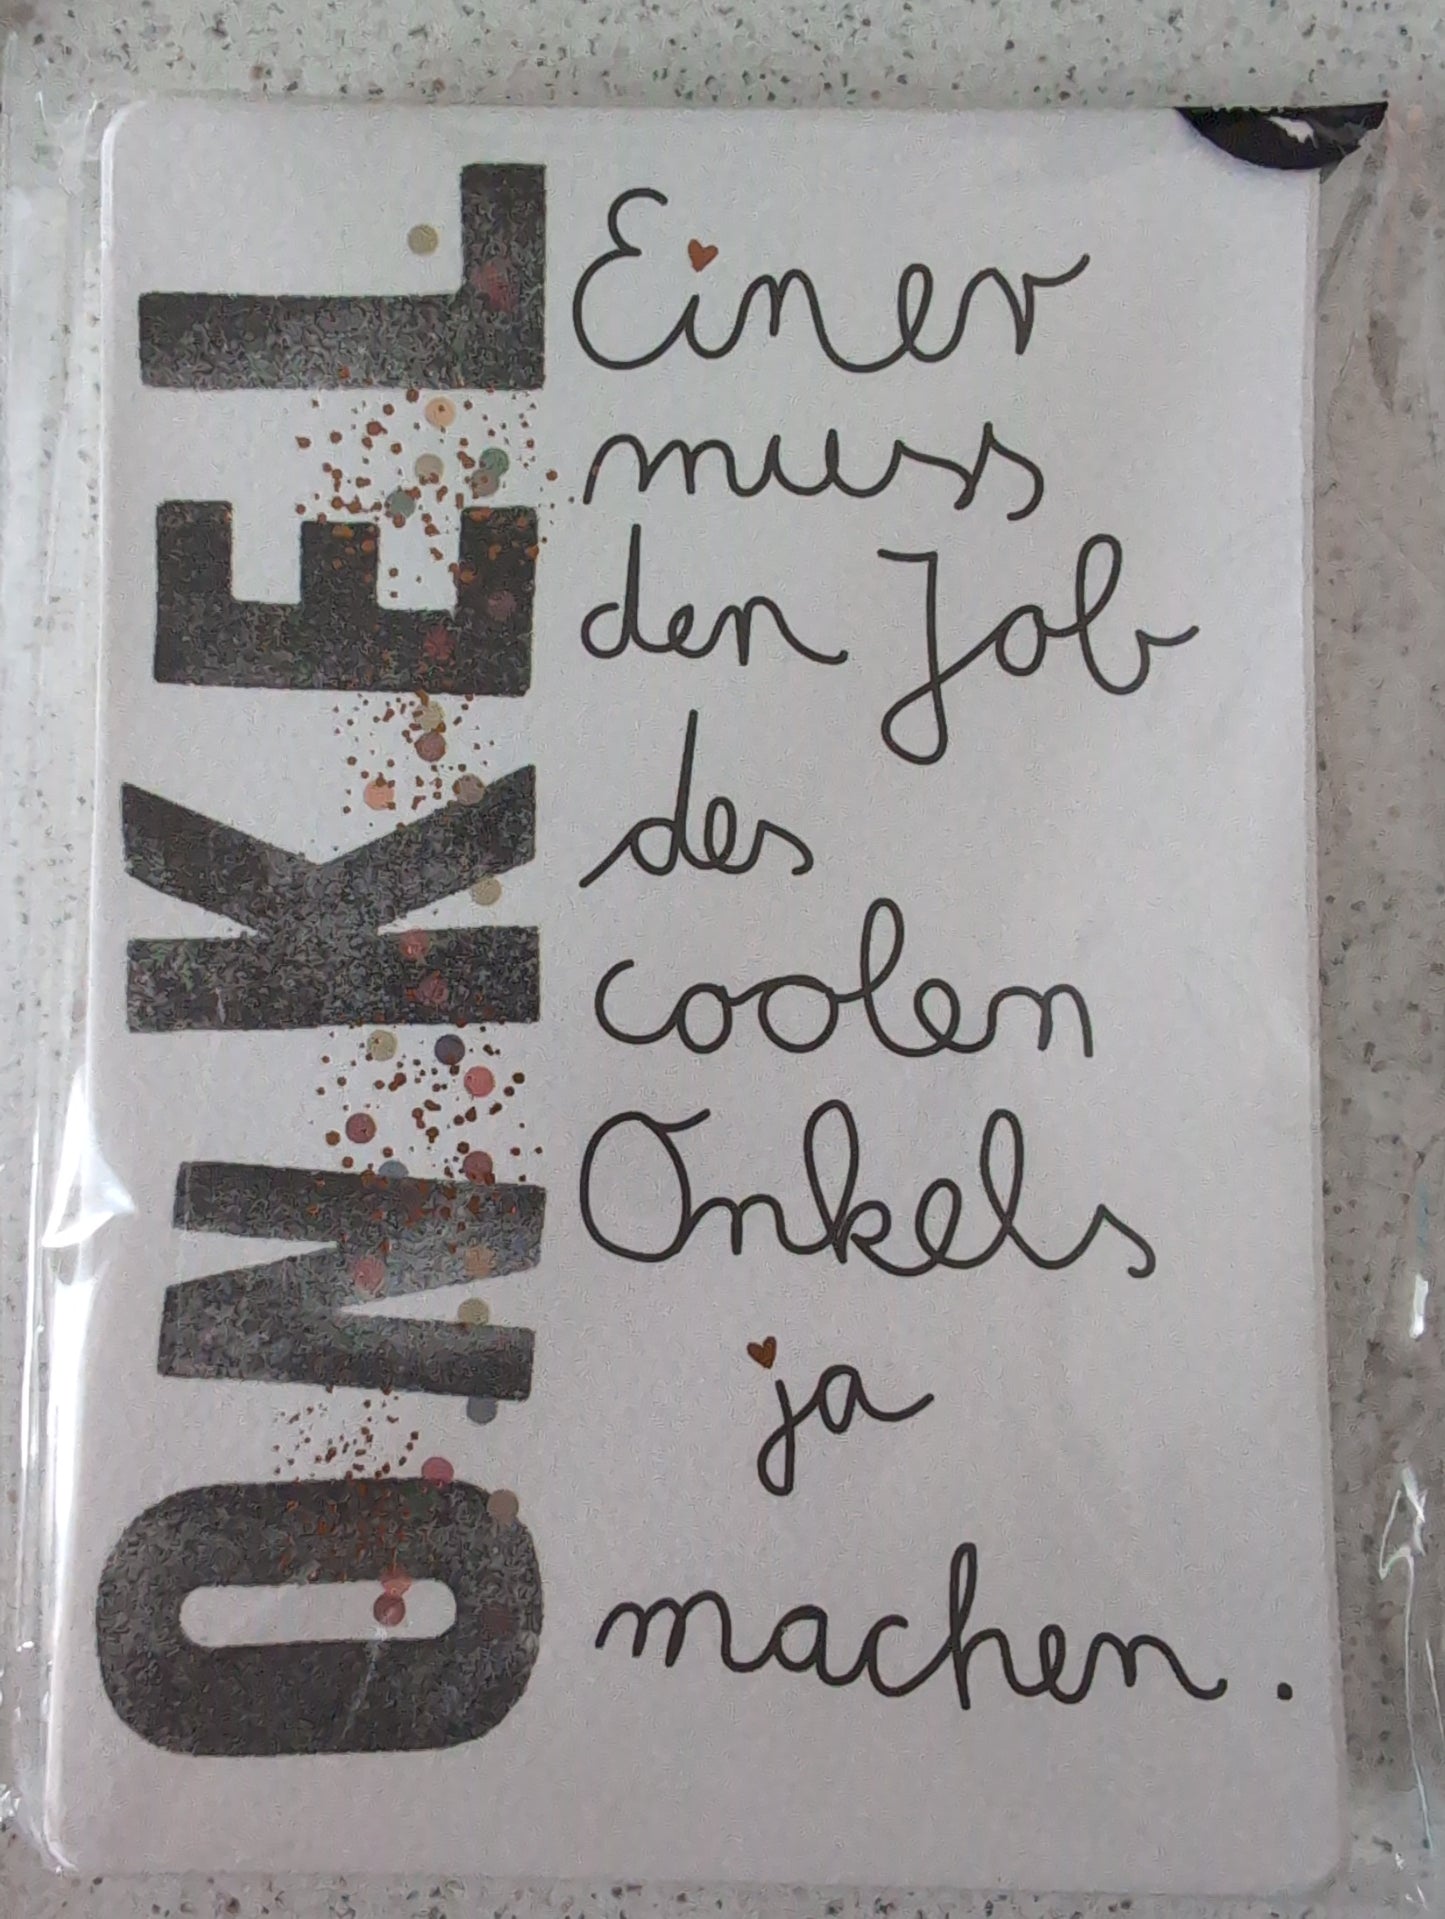 ONKEL
Einer
muss
den Job
des
coolen
Onkels
ja
machen.